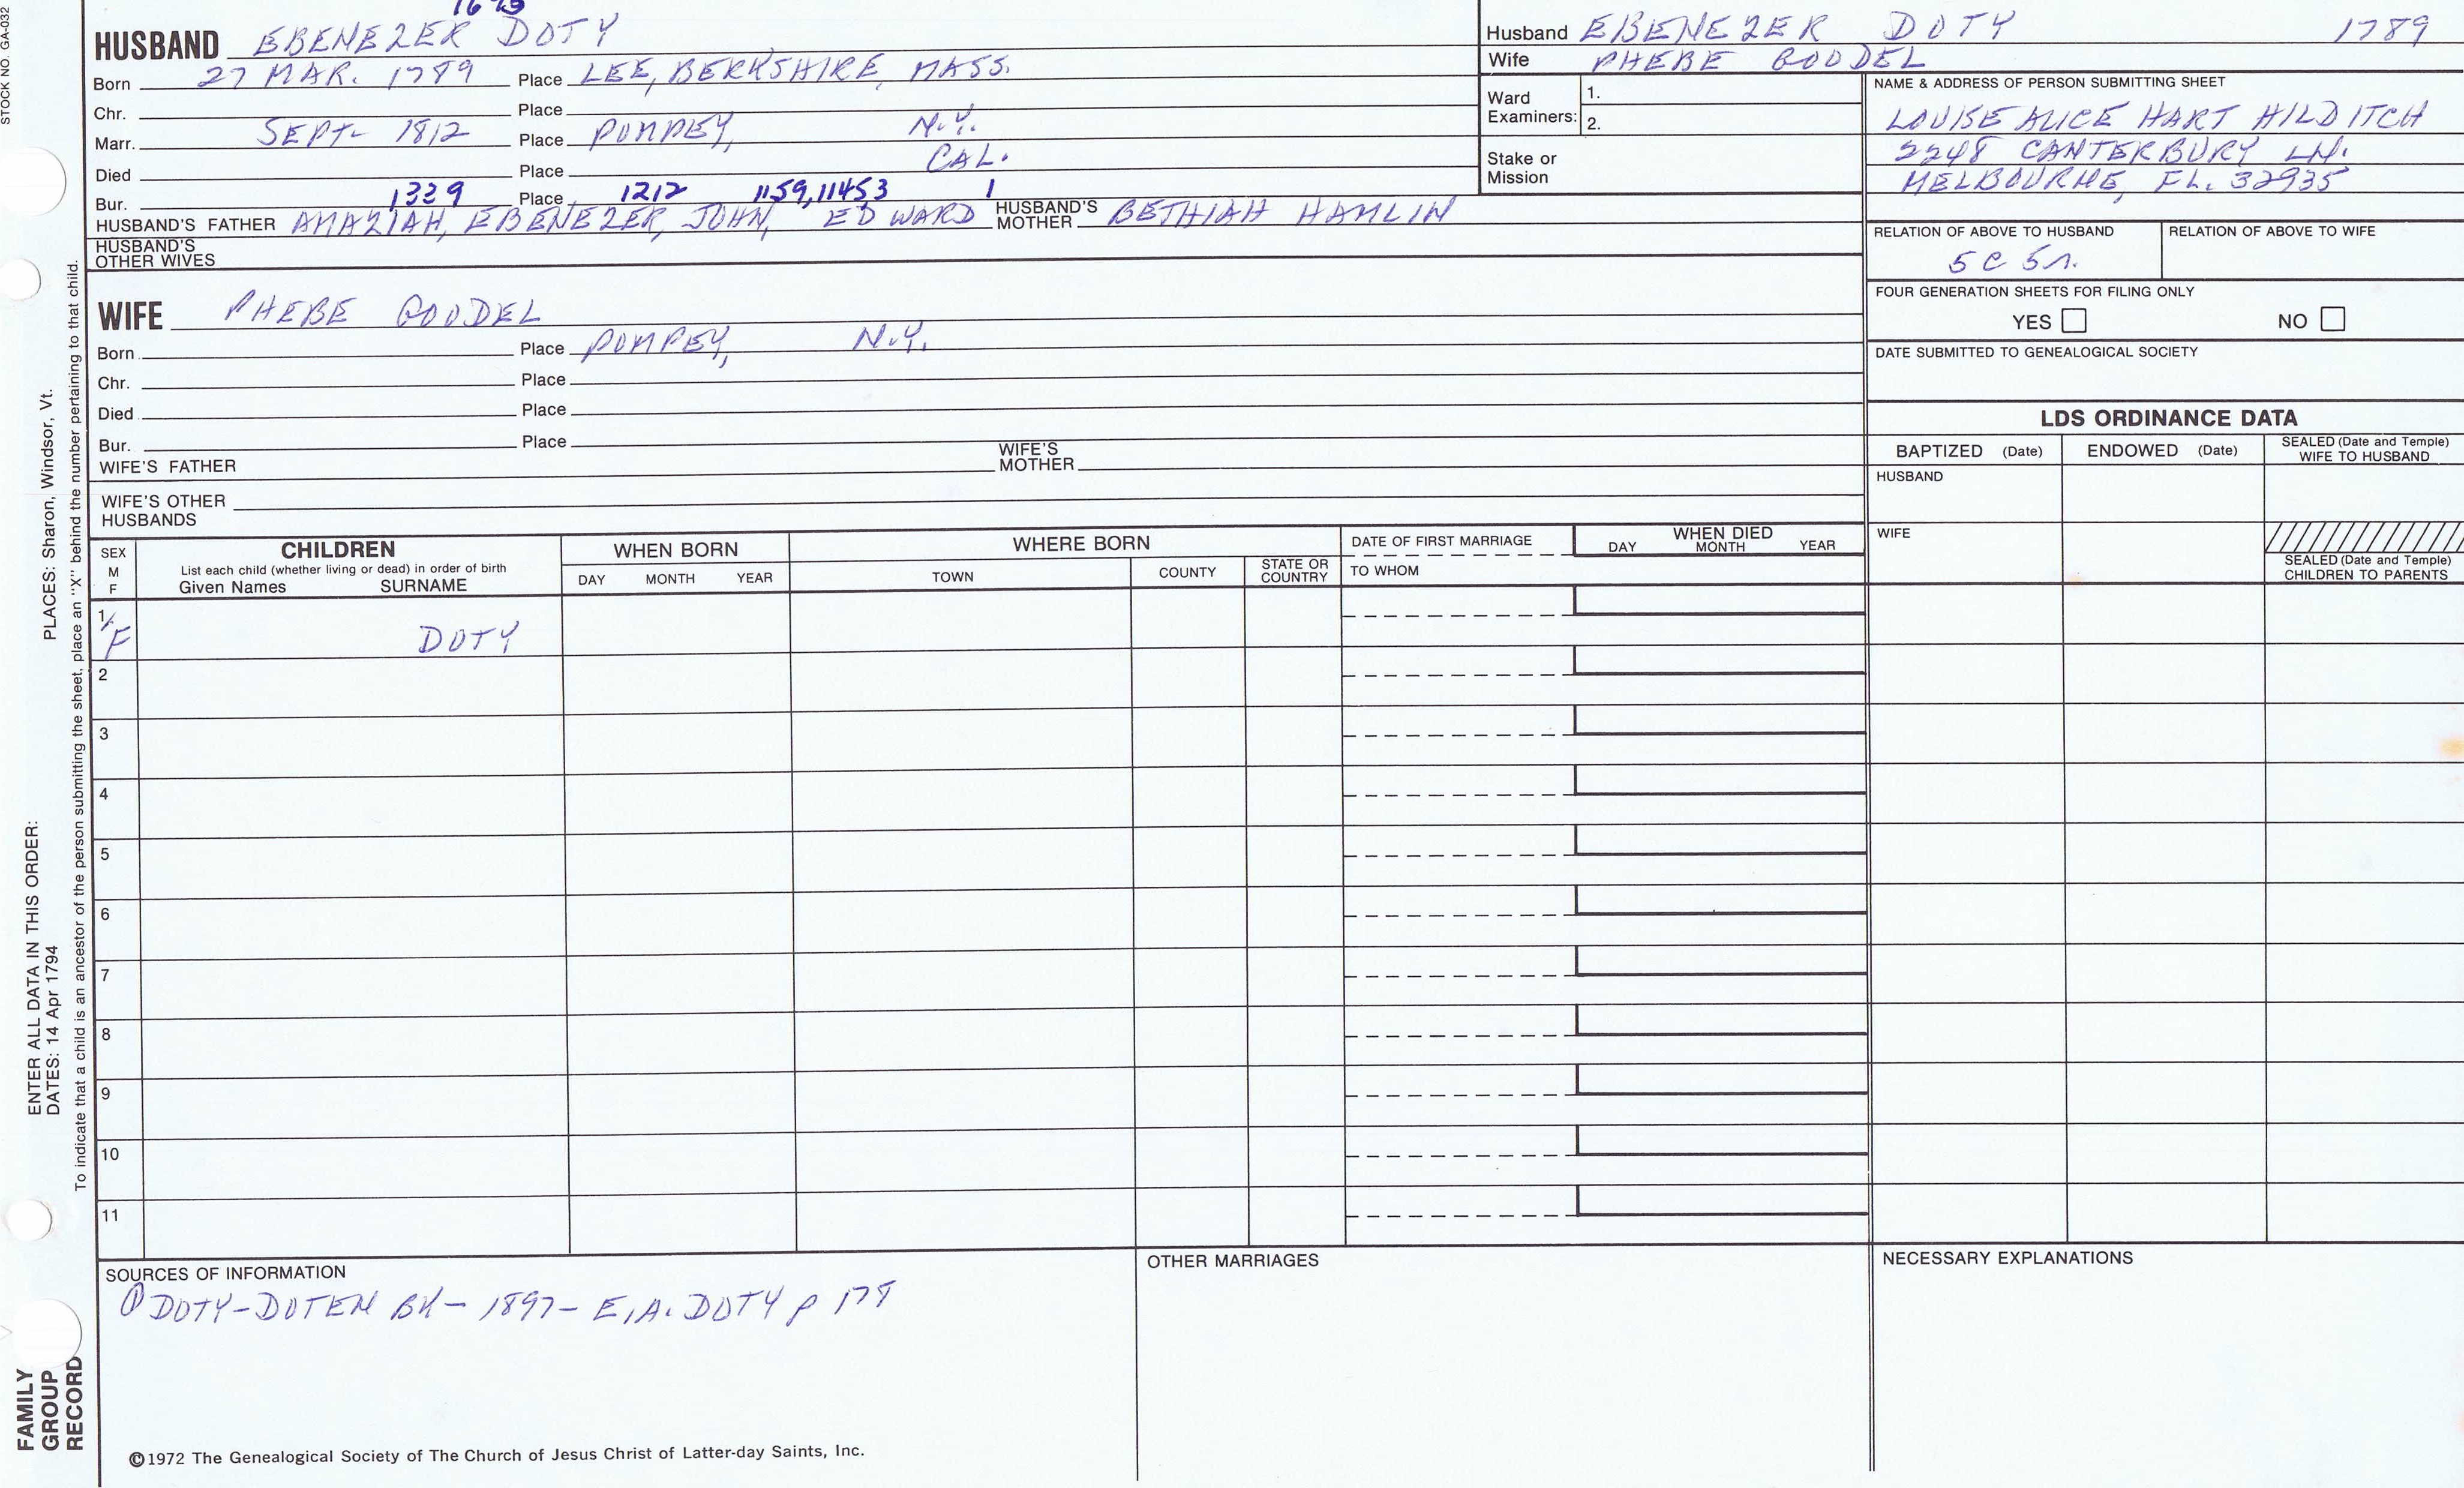 STOCK NO. GA-032
HUSBAND EBENEZER DOTY
Born 27 MAR. 1789 Place LEE, BERKSHIRE, MASS.
Chr. Place
Marr. SEPT- 1812 Place POMPEY, N.Y.
Died Place CAL.
Bur. Place
1339 1212 1159, 11453 1
HUSBAND'S FATHER AMAZIAH, EBENEZER, JOHN, EDWARD HUSBAND'S MOTHER BETHIAH HAMLIN
HUSBAND'S OTHER WIVES
WIFE PHEBE GOODEL
Born Place POMPEY, N.Y.
Chr. Place
Died Place
Bur. Place
WIFE'S FATHER WIFE'S MOTHER
WIFE'S OTHER HUSBANDS
Husband EBENEZER DOTY 1789
Wife PHEBE GOODEL
Ward Examiners: 1.
2.
Stake or Mission
NAME & ADDRESS OF PERSON SUBMITTING SHEET
LOUISE ALICE HART HILDITCH
2248 CANTERBURY LN.
MELBOURNE, FL. 32935
RELATION OF ABOVE TO HUSBAND RELATION OF ABOVE TO WIFE
5C 5r.
FOUR GENERATION SHEETS FOR FILING ONLY
YES NO
DATE SUBMITTED TO GENEALOGICAL SOCIETY
LDS ORDINANCE DATA
BAPTIZED (Date) ENDOWED (Date) SEALED (Date and Temple) WIFE TO HUSBAND
HUSBAND
WIFE
SEALED (Date and Temple) CHILDREN TO PARENTS
SEX M F
CHILDREN
List each child (whether living or dead) in order of birth
Given Names SURNAME
WHEN BORN
DAY MONTH YEAR
WHERE BORN
TOWN COUNTY STATE OR COUNTRY
DATE OF FIRST MARRIAGE
TO WHOM
WHEN DIED
DAY MONTH YEAR
1 F DOTY
2
3
4
5
6
7
8
9
10
11
SOURCES OF INFORMATION
① DOTY-DOTEN BK- 1897- E.A. DOTY p 178
OTHER MARRIAGES
NECESSARY EXPLANATIONS
©1972 The Genealogical Society of The Church of Jesus Christ of Latter-day Saints, Inc.
FAMILY GROUP RECORD
ENTER ALL DATA IN THIS ORDER:
DATES: 14 Apr 1794 PLACES: Sharon, Windsor, Vt.
To indicate that a child is an ancestor of the person submitting the sheet, place an "X" behind the number pertaining to that child.